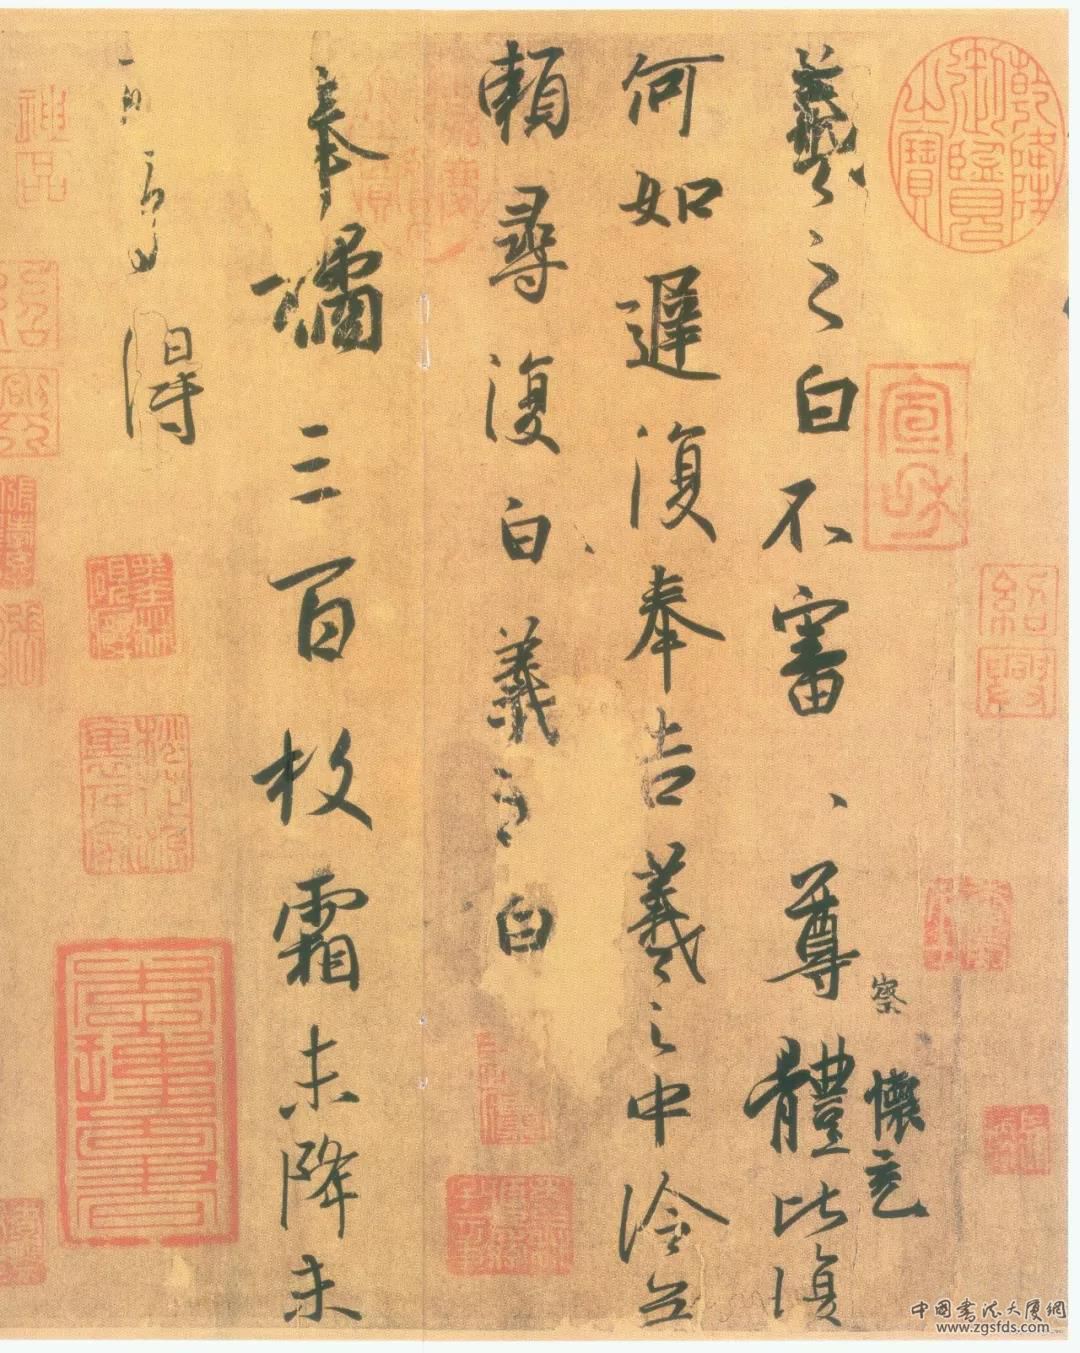 乾隆御覽之寶
宣和
紹興
察
懷充
羲之白不審、尊體比復
何如遲復奉告羲之中冷無
賴尋復白羲之白
奉橘三百枚霜未降未
可多得
神品
中國書法大廈網
www.zgsfds.com